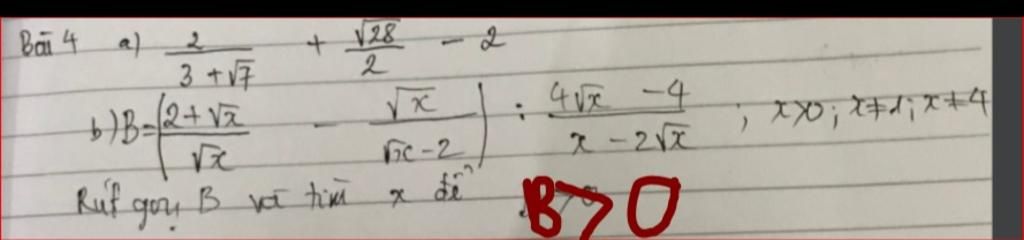 Bài 4 a) 2/(3 + √7) + √28/2 - 2
b) B = ((2 + √x)/√x - √x/(√x - 2)) : (4√x - 4)/(x - 2√x) ; x>0; x≠1; x≠4
Rút gọn B và tìm x để B>0